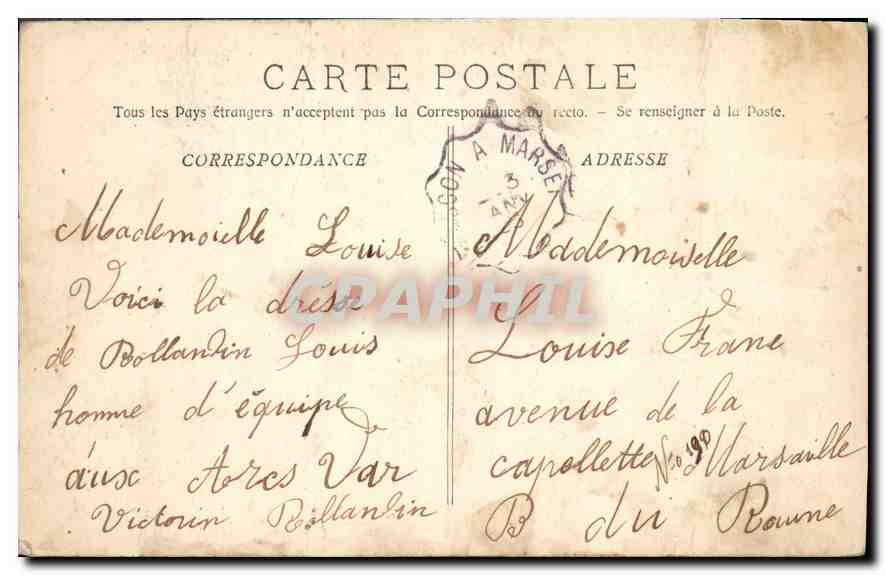 CARTE POSTALE
Tous les Pays étrangers n'acceptent pas la Correspondance au recto. – Se renseigner à la Poste.
CORRESPONDANCE
Mademoielle Louise
Voici la drésse
de Rollandin Louis
homme d'équipe
áux Arcs Var
Victorin Rollandin
ADRESSE
SON A MARSEI
3
JANV
Mademoiselle
Louise Frane
avenue de la
capellette No 190 Marsaille
B du Roune
CPAPHIL